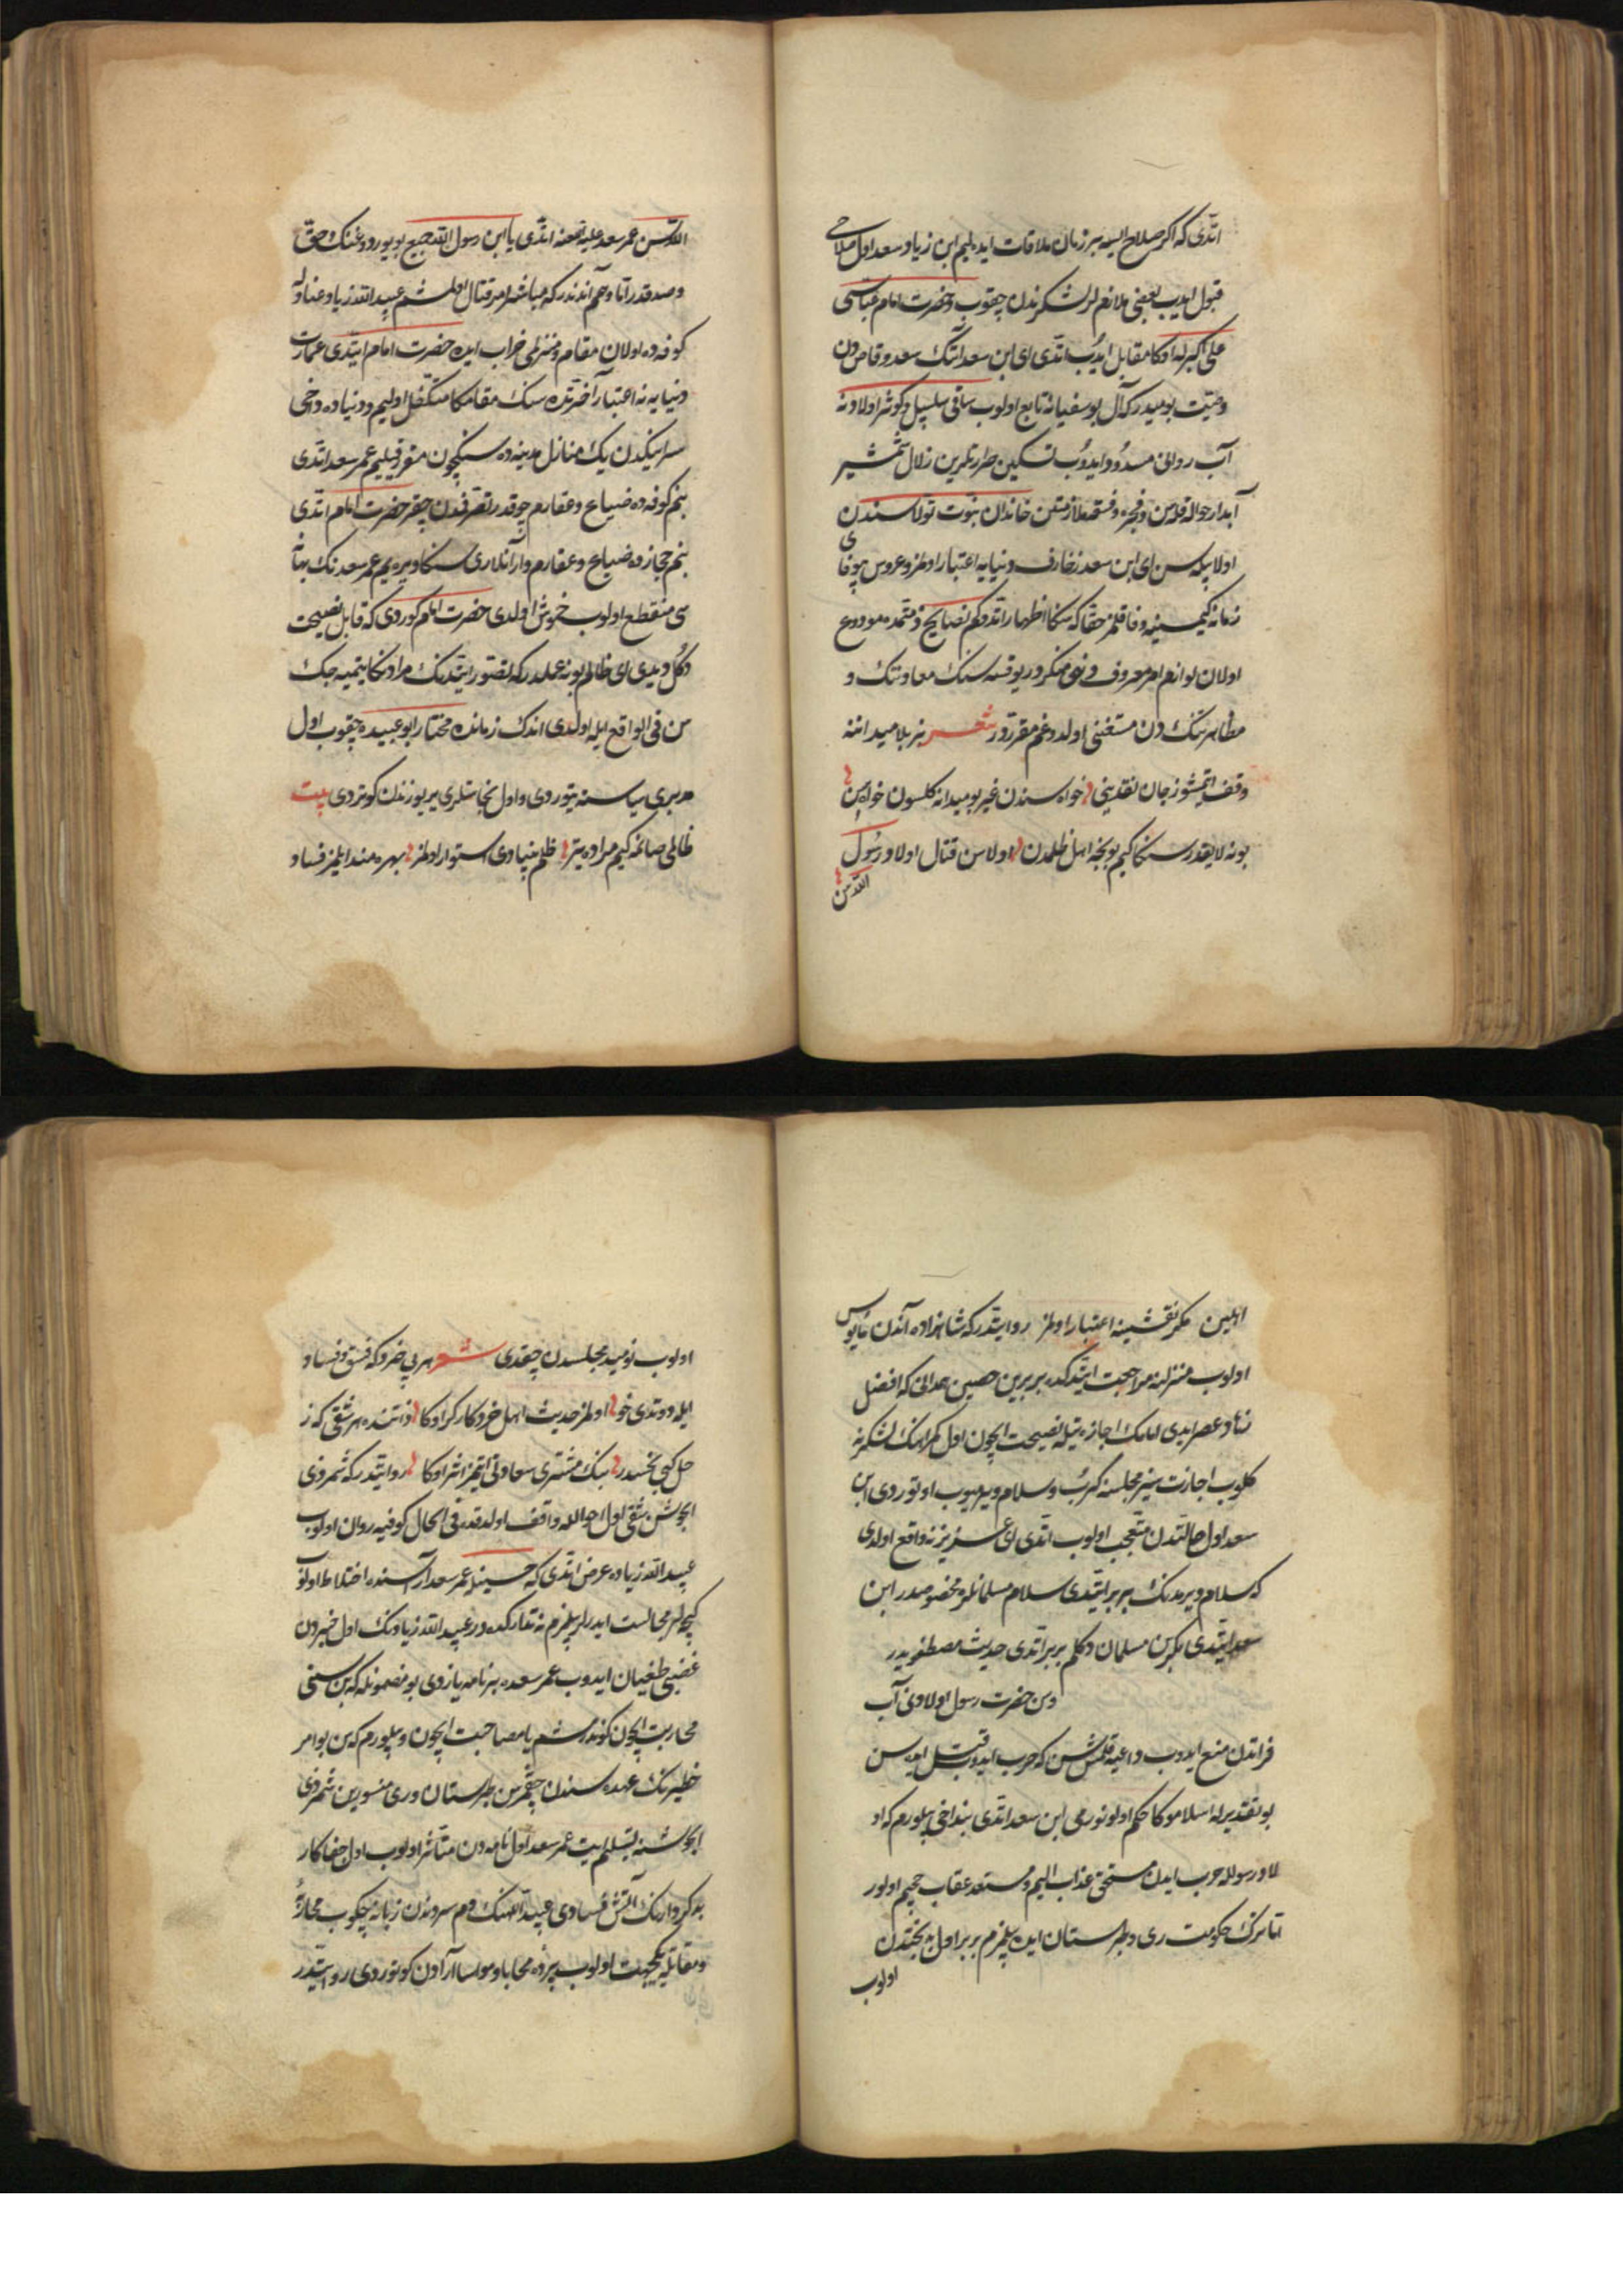 اتدی که اکر صلاح ایسه بر زمان ملاقات ایده لیم ابن زیاد سعد اول صلاحی
قبول ایدب بعضی ملازملر لشکرندن چقوب حضرت امام عباسی
علی اکبرله اوکا مقابل ایدب اتدی ای ابن سعد اتنک سعد وقاص دن
وصیت بومیدر که آل بوسفیانه تابع اولوب ساقی سلسبیل وکوثر اولادونه
آب روانی مسدود ایدوب تسکین حرارتلرین زلال شمشیر
آبدار حواله قلاسن وفجره وفسقه ملازمتن خاندان نبوت تولاسندن
اولا بیله سن ای ابن سعد زخارف دنیایه اعتبار اولمز وعروس بیوفای
زمانه کیمسینه وفا قلمز حقا که سکا اظهار اتدوکم نصایح ذمتمده مودوع
اولان لوازم امر معروف ونهی منکر در یوقسه سنک معاونتنک و
مظاهرتنک دن مستغنی اولدوغم مقرردور شعر بز بلا میداننه
وقف ایتمشوز جان نقدینی خواه سندن غیر بو میدانه کلسون خواه سن
بونه لایقدر سکا کیم بونجه اهل ظلمدن اولاسن قتال اولاد رسول
الله سن
الله سن عمر سعد علیه اللعنه اتدی یا ابن رسول الله جمیع بویوردوغنک حق
وصدقدر اتا وهم آندندر که مباشر امر قتال اولمشم عبید الله زیاد عنادله
کوفه ده اولان مقام ومنزلمی خراب ایده حضرت امام ایتدی عمارت
دنیایه نه اعتبار آخرتده سنک مقامکا متکفل اولیم ودنیاده داخی
سراینکدن یک منازل مدینه ده سنکچون مقرر قیلیم عمر سعد اتدی
بنم کوفه ده ضیاع وعقارم چوقدر تصرفدن چقر حضرت امام اتدی
بنم حجازده ضیاع وعقارم وار آنلاری سکا ویریم عمر سعدنک بهانه
سی منقطع اولوب خموش اولدی حضرت امام کوردی که قابل نصیحت
دکل دیدی ای ظالم بو نه عملدر که تصور ایتدنک مرادنکا یتمیه جک
سن فی الواقع ایله اولدی اندک زمانده مختار ابو عبیده چقوب اول
مدبری سیاستنه یتوردی واول نجاستلری یر یوزندن کوتردی بیت
ظالمی صانمه کیم مراده یتر ظلم بنیادی استوار اولمز بهره مند ایلمز فساد
اهلین مکر نقشینه اعتبار اولمز روایتدر که شاهزاده آندن مایوس
اولوب منزلنه مراجعت ایتدکده بربر بن حصین همدانی که افضل
زهاد عصر ایدی امامنک اجازه تیله نصیحت ایچون اول کمراهنک لشکرنه
کلوب اجازت سیز مجلسنه کرب وسلام ویرمیوب اوتوردی ابن
سعد اول حالتدن متعجب اولوب اتدی ای عزیز نه واقع اولدی
که سلام ویرمدنک بربر ایتدی سلام مسلمانلره مخصوصدر ابن
سعد ایتدی مکر بن مسلمان دکلم بربر اتدی حدیث مصطفویدر
وسن حضرت رسول اولادنی آب
فراتدن منع ایدوب داعیه قلمشسن که حرب ایدوب قتل ایده سن
بو تقدیرله اسلامونکا حکم اولونورمی ابن سعد اتدی بنداخی بیلورم که او
لاد رسولله حرب ایدن مستحق عذاب الیم ومستعد عقاب جحیم اولور
اتا ترک حکومت ری وطبرستان ایده بیلمزم بربر اول بدبختدن
اولوب
اولوب نومید مجلسدن چقدی شعر هر بی خرد که فسق وفساد
ایله دوتدی خو اولمز حدیث اهل خرد کارکر اوکا ذاتنده هر شقی که ز
حل کبی نحسدر بنک مشتری سعادتی ایتمز اثر اوکا روایتدر که شمر ذی
الجوشن شقی اول احوالله واقف اولدقده فی الحال کوفیه روان اولوب
عبید الله زیاده عرض اتدی که حسینله عمر سعد آراسنده اختلاط اولوب
کیجه لر مجالست ایدرلر بیلمزم نه تدارکده در عبید الله زیادنک اول خبردن
غضبی طغیان ایدوب عمر سعده بر نامه یازدی بو مضمونله که بن سنی
محاربت ایچون کوندرمشم یا مصاحبت ایچون وبیلورم که سن بو امر
خطیرنک عهده سندن چقمزسن طبرستان وری منشورین شمر ذی
الجوشنه تسلیم ایت عمر سعد اول نامه دن متاثر اولوب اول جفاکار
بدکردارنک آتش فسادی عبید اللهنک دم سردندن زبانه چکوب محاربه
ومقاتله یه یکجهت اولوب پرده محابا ومواسا آرادن کوتوردی روایتدر